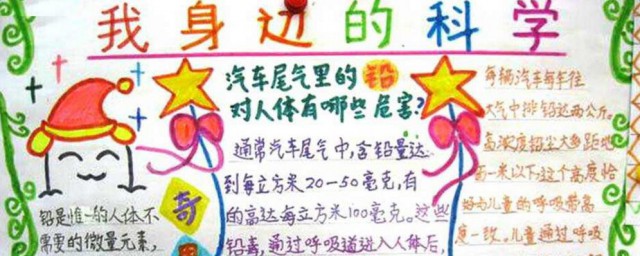 我身边的科学
汽车尾气里的铅
对人体有哪些危害?
通常汽车尾气中,含铅量达
到每立方米20-50毫克,有
的高达每立方米100毫克。这些
铅毒,通过呼吸道进入人体后,
铅是惟一的人体不
需要的微量元素,
奇
每辆汽车每年往
大气中排铅达两公斤。
高浓度铅尘大多距地
面一米以下,这个高度恰
好为儿童的呼吸带高
度一致。儿童通过呼吸